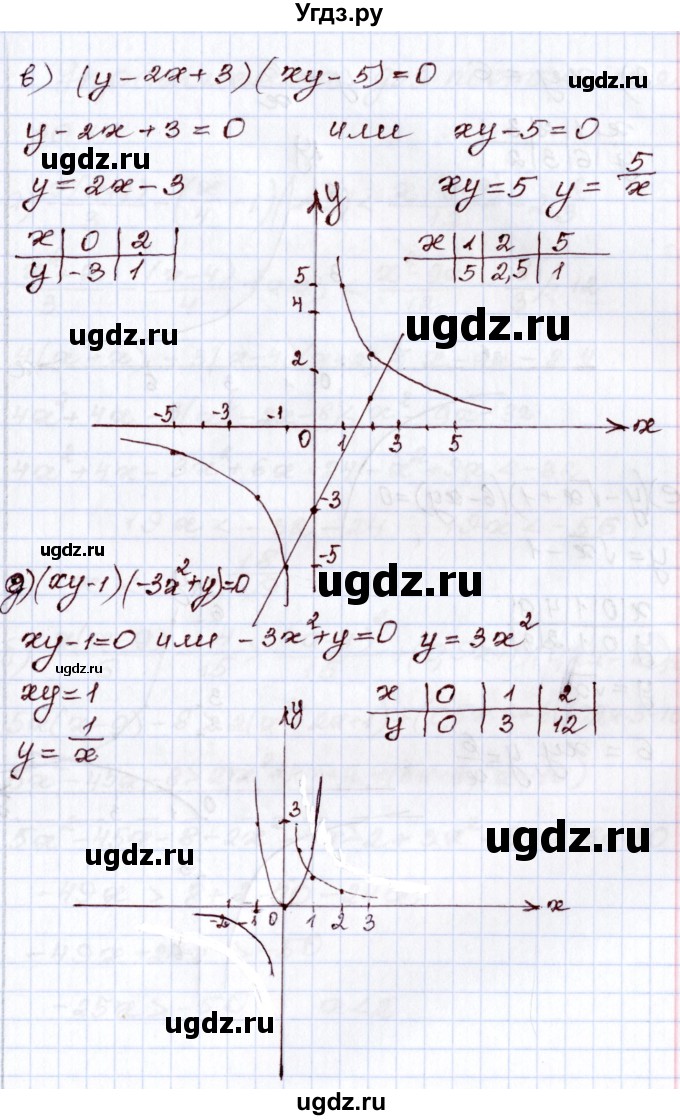 Угдз.ру
в) (y - 2x + 3)(xy - 5) = 0
ugdz.ru
y - 2x + 3 = 0 или xy - 5 = 0
ugdz.ru
y = 2x - 3 xy = 5 y = 5/x
x | 0 | 2 |
y | -3 | 1 |
x | 1 | 2 | 5
| 5 | 2,5 | 1
y
5
4
ugdz.ru
ugdz.ru
2
-5 -3 -1 0 1 3 5 x
-3
-5
ugdz.ru
ugdz.ru
д) (xy - 1)(-3x² + y) = 0
xy - 1 = 0 или -3x² + y = 0 y = 3x²
ugdz.ru
xy = 1
y = 1/x
x | 0 | 1 | 2
y | 0 | 3 | 12
y
3
ugdz.ru
ugdz.ru
-2 -1 0 1 2 3 x
ugdz.ru
ugdz.ru